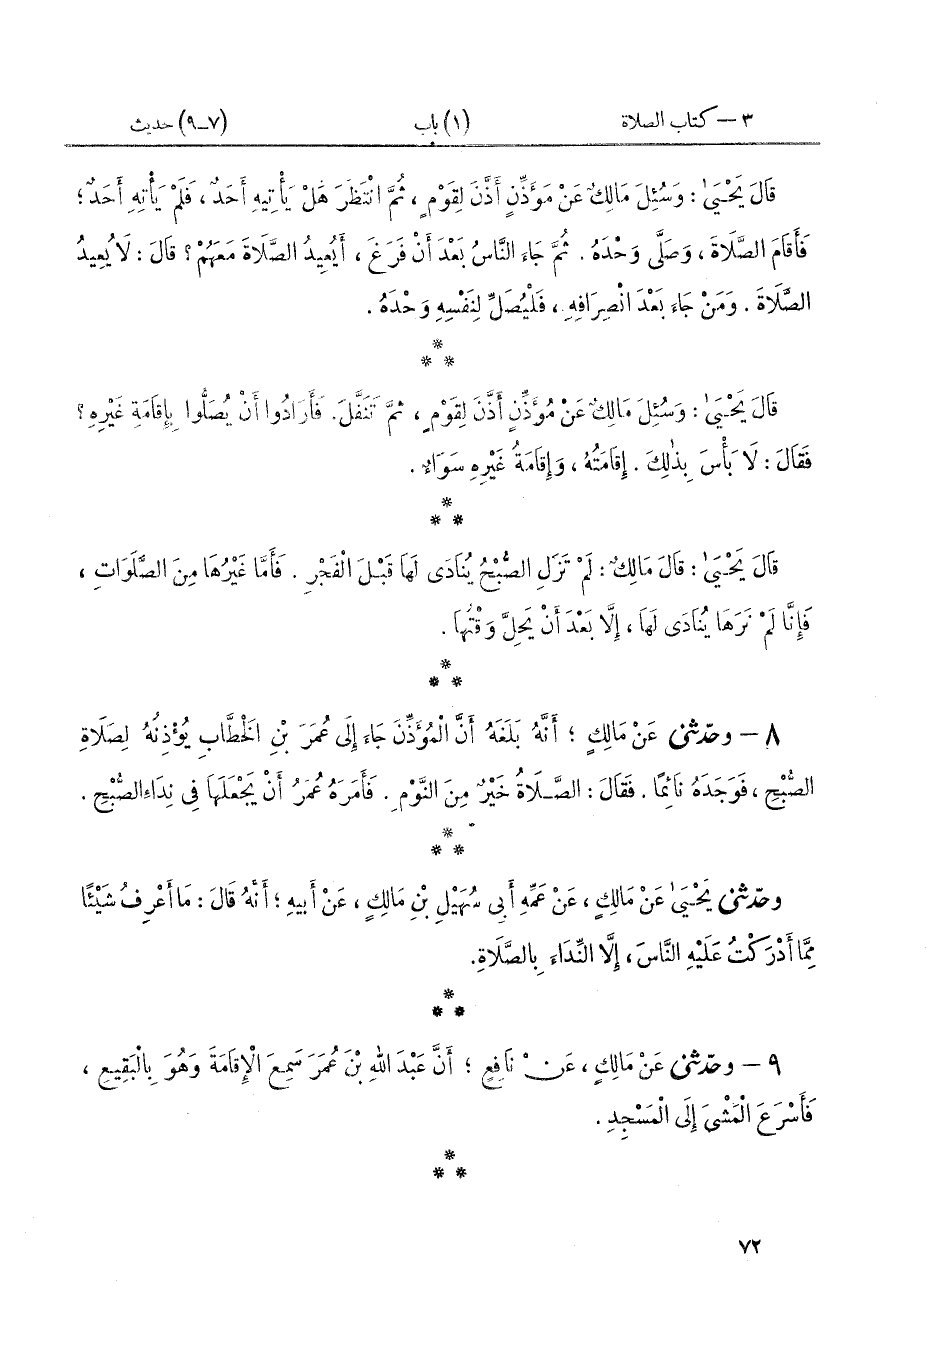 ٣ — كتاب الصلاة (١) باب (٧-٩) حديث
قَالَ يَحْيَىٰ : وَسُئِلَ مَالِكٌ عَنْ مَوَّذِّنٍ أَذَّنَ لِقَوْمٍ ، ثُمَّ انْتَظَرَ هَلْ يَأْتِيهِ أَحَدٌ ، فَلَمْ يَأْتِهِ أَحَدٌ ؛
فَأَقَامَ الصَّلَاةَ ، وَصَلَّى وَحْدَهُ . ثُمَّ جَاءَ النَّاسُ بَعْدَ أَنْ فَرَغَ ، أَيُعِيدُ الصَّلَاةَ مَعَهُمْ ؟ قَالَ : لَا يُعِيدُ
الصَّلَاةَ . وَمَنْ جَاءَ بَعْدَ انْصِرَافِهِ ، فَلْيُصَلِّ لِنَفْسِهِ وَحْدَهُ .
*
* *
قَالَ يَحْيَىٰ : وَسُئِلَ مَالِكٌ عَنْ مُؤَذِّنٍ أَذَّنَ لِقَوْمٍ ، ثُمَّ تَنَفَّلَ. فَأَرَادُوا أَنْ يُصَلُّوا بِإِقَامَةِ غَيْرِهِ ؟
فَقَالَ : لَا بَأْسَ بِذٰلِكَ . إِقَامَتُهُ ، وَإِقَامَةُ غَيْرِهِ سَوَاءٌ .
*
* *
قَالَ يَحْيَىٰ : قَالَ مَالِكٌ : لَمْ تَزَلِ الصُّبْحُ يُنَادَى لَهَا قَبْلَ الْفَجْرِ . فَأَمَّا غَيْرُهَا مِنَ الصَّلَوَاتِ ،
فَإِنَّا لَمْ نَرَهَا يُنَادَى لَهَا ، إِلَّا بَعْدَ أَنْ يَحِلَّ وَقْتُهَا .
*
* *
٨ — وحدّثنى عَنْ مَالِكٍ ؛ أَنَّهُ بَلَغَهُ أَنَّ الْمُؤَذِّنَ جَاءَ إِلَى عُمَرَ بْنِ الْخَطَّابِ يُؤْذِنُهُ لِصَلَاةِ
الصُّبْحِ ، فَوَجَدَهُ نَائِمًا . فَقَالَ : الصَّلَاةُ خَيْرٌ مِنَ النَّوْمِ . فَأَمَرَهُ عُمَرُ أَنْ يَجْعَلَهَا فِى نِدَاءِ الصُّبْحِ .
*
* *
وحدّثنى يَحْيَىٰ عَنْ مَالِكٍ ، عَنْ عَمِّهِ أَبِى سُهَيْلِ بْنِ مَالِكٍ ، عَنْ أَبِيهِ ؛ أَنَّهُ قَالَ : مَا أَعْرِفُ شَيْئًا
مِمَّا أَدْرَكْتُ عَلَيْهِ النَّاسَ ، إِلَّا النِّدَاءَ بِالصَّلَاةِ.
*
* *
٩ — وحدّثنى عَنْ مَالِكٍ ، عَنْ نَافِعٍ ؛ أَنَّ عَبْدَ اللهِ بْنَ عُمَرَ سَمِعَ الْإِقَامَةَ وَهُوَ بِالْبَقِيعِ ،
فَأَسْرَعَ الْمَشْىَ إِلَى الْمَسْجِدِ .
*
* *
٧٢